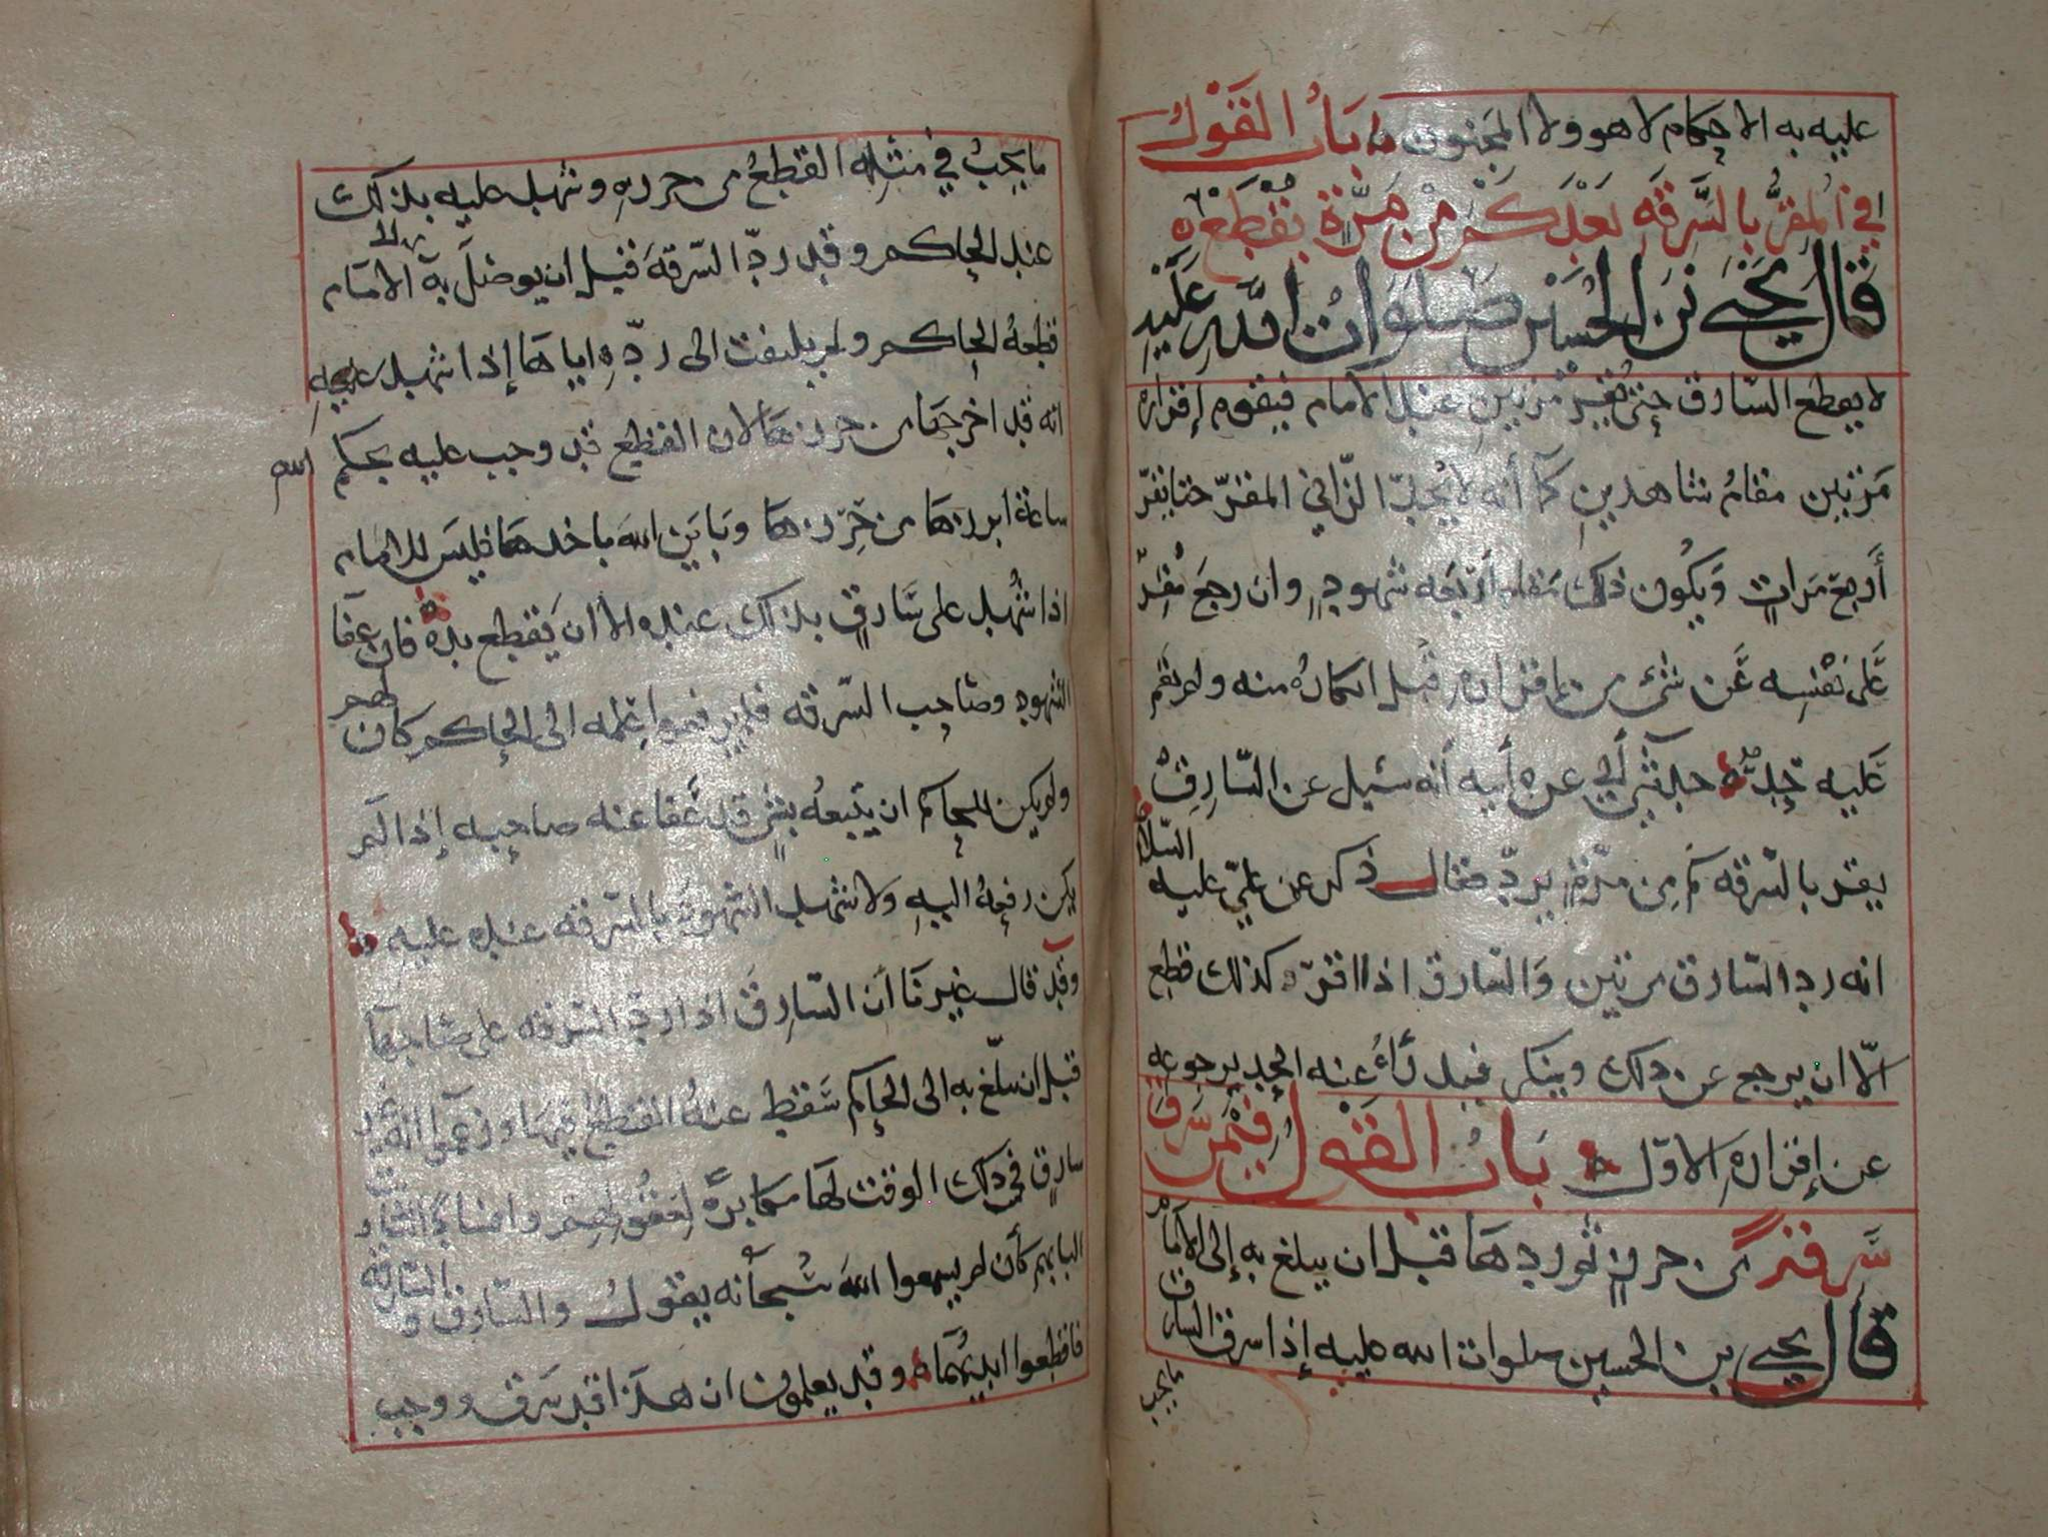 عليه به الاحكام لا هو ولا المجنون باب القول
في المقر بالسرقه بعدكم من مرة يقطع
قال يحيى بن الحسين صلوات الله عليه
لا يقطع السارق حتى يقر مرتين عند الامام فيقوم إقراره
مرتين مقام شاهدين كما أنه لا يحد الزاني المقر حتا يقر
أربع مرات ويكون ذلك مقام أربعه شهود وان رجع مقر
على نفسه عن شئ من ما اقر به قبل انكاره منه ولم يقم
عليه حد حدثني أبي عن أبيه أنه سئل عن السارق
يقر بالسرقه كم من مرة يرد فقال ذكر عن علي عليه السلام
انه رد السارق مرتين والسارق اذا اقر كذلك قطع
الا ان يرجع عن ذلك وينكر فيدرأ عنه الحد برجوعه
عن إقراره الاول باب القول فيمن سرق
سرقة من حرز ثم ردها قبل ان يبلغ به إلى الامام
قال يحيى بن الحسين صلوات الله عليه إذا سرق السارق
ما يجب
ما يجب في مثله القطع من حرزه وشهد عليه بذلك
عند الحاكم وقد رد السرقة قبل ان يوصل به الى الامام
قطعه الحاكم ولم يلتفت الى رده اياها إذا شهد عليه
انه قد اخرجها من حرزها لان القطع قد وجب عليه بحكم الله
ساعة ابرزها من حرزها وباين الله باخذها فليس للامام
اذا شهد على سارق بذلك عنده الا ان يقطع يده فان عفا
الشهود وصاحب السرقه فلم يرفعوا علمه الى الحاكم كان لهم
ولم يكن للحاكم ان يتبعه بشئ قد عفا عنه صاحبه إذا لم
يكن رفعه اليه ولا شهد الشهود بالسرقه عنده عليه
وقد قال غيرنا أن السارق اذا رد السرقه على صاحبها
قبل ان يبلغ به الى الحاكم سقط عنه القطع فيها وزعموا انه غير
سارق في ذلك الوقت لها مكابرة لعقولهم وافسادا
البابهم كأن لم يسمعوا الله سبحانه يقول والسارق والسارقة
فاقطعوا ايديهما وقد يعلمون ان هذا قد سرق ووجب